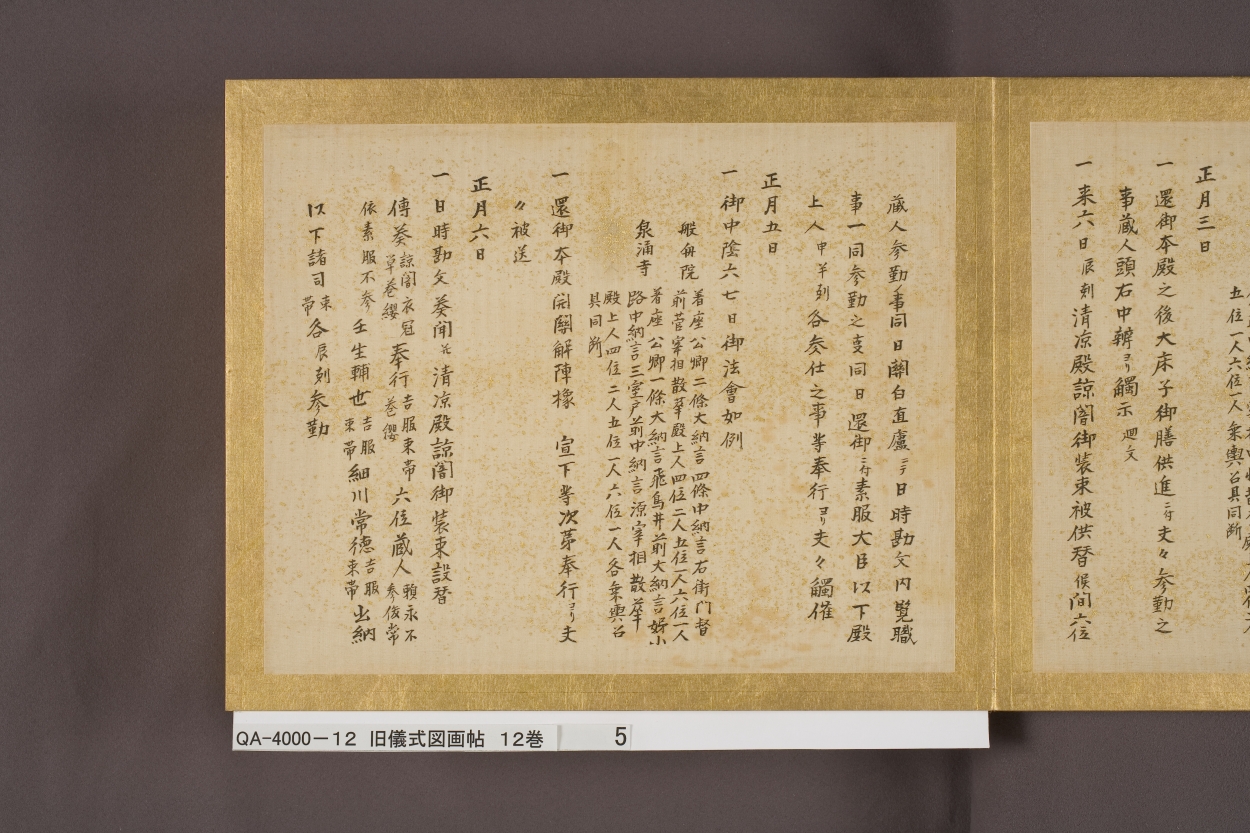 五位一人六位一人乗輿召具同断
正月三日
一還御本殿之後大床子御膳供進ニ付夫々参勤之
事蔵人頭右中辨ヨリ觸示廻文
一来六日辰刻清凉殿諒闇御装束被供替候間六位
蔵人参勤事同日關白直廬ニテ日時勘文内覧職
事一同参勤之支同日還御ニ付素服大臣以下殿
上人申半刻各参仕之事等奉行ヨリ夫々觸催
正月五日
一御中陰六七日御法會如例
般舟院 着座公卿二條大納言四條中納言右衛門督
前菅宰相散華殿上人四位二人五位一人六位一人
泉涌寺 着座公卿一條大納言飛鳥井前大納言姉小
路中納言三室戸前中納言源宰相散華
殿上人四位二人五位一人六位一人各乗輿召
具同断
一還御本殿固關解陣椽 宣下等次第奉行ヨリ夫
々被送
正月六日
一日時勘文奏聞訖清凉殿諒闇御装束設替
傳奏諒闇衣冠草巻纓奉行吉服束帯巻纓六位蔵人頼永不参俊常
依素服不参壬生輔世吉服束帯細川常徳吉服束帯出納
以下諸司束帯各辰刻参勤
QA-4000-12 旧儀式図画帖 12巻 5